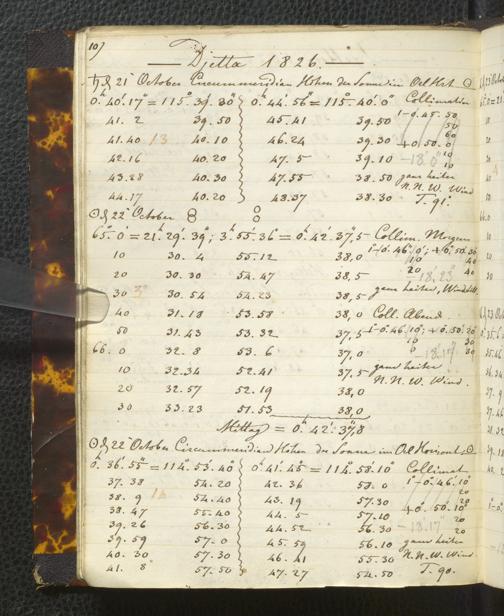 107
Djetta 1826.
♄ d 21 October Circummeridian Höhen der Sonne im Oel Hrt. ☉
0. 40. 17 = 115°. 39. 30 0. 44. 56 = 115°. 40. 0 Collimation
41. 2 39. 50 45. 41 39. 50 1-0. 45. 50
50
41. 40 13 40. 10 46. 24 39. 30 60
+0. 50. 0
42. 16 40. 20 47. 5 39. 10 -18. 0 10
10
43. 28 40. 30 47. 55 38. 50 ganz heiter
N. N. W. Wind
44. 17 40. 20 48. 37 38. 30 T. 91.
☉ d 22 October
65. 0 = 21. 29. 39; 3. 55. 36 = 0. 42. 37,5 Collim. Morgens
1-0. 46. 0; +0. 50. 30
10 30. 4 55. 12 38,0 10 40
20 30. 30 54. 47 38,5 20 18. 23 40
30 30. 54 54. 23 38,5 ganz heiter, Windstill
40 31. 18 53. 58 38,0 Coll. Abend
50 31. 43 53. 32 37,5 1-0. 46. 10; +0. 50. 20
10 30
66. 0 32. 8 53. 6 37,0 0 -18. 17
10 32. 34 52. 41 37,5 ganz heiter
20 32. 57 52. 19 38,0 N. N. W. Wind.
30 33. 23 51. 53 38,0
Mittag = 0. 42. 37,8
☉ d 22 October Circummeridian Höhen der Sonne im Oel Horizont ☉
0. 36. 55 = 114°. 53. 40 0. 41. 45 = 114°. 58. 10 Collimat
37. 38 54. 20 42. 36 58. 0 1-0. 46. 10
20
38. 9 54. 40 43. 19 57. 30 20
38. 47 55. 40 44. 5 57. 10 +0. 50. 10
39. 26 56. 30 44. 52 56. 30 -18. 17 20
20
39. 59 57. 0 45. 59 56. 10 ganz heiter
40. 30 57. 30 46. 41 55. 30 N. N. W. Wind
41. 8 57. 50 47. 27 54. 50 T. 90.